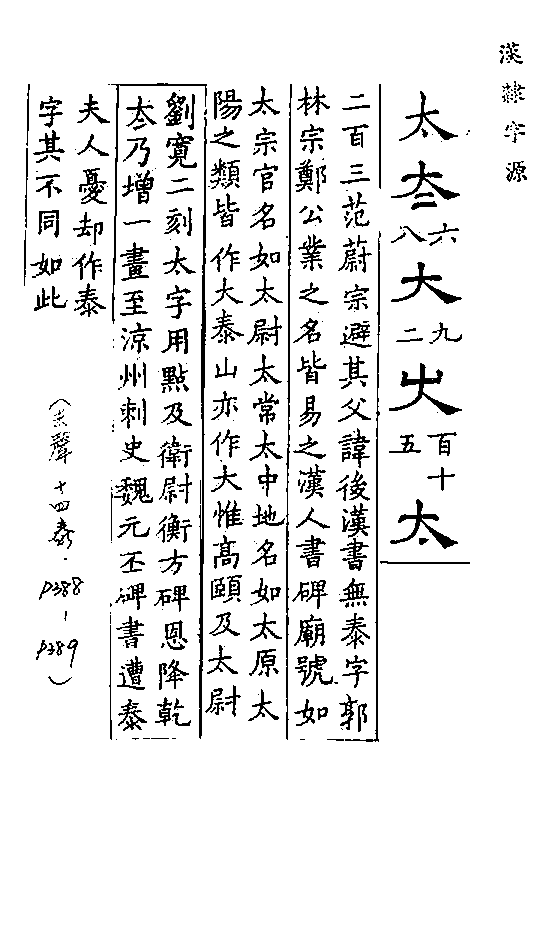 漢隸字源
太 夳 六八 大 九二 𡗕 百十五 太
二百三范蔚宗避其父諱後漢書無泰字郭
林宗鄭公業之名皆易之漢人書碑廟號如
太宗官名如太尉太常太中地名如太原太
陽之類皆作大泰山亦作大惟高頤及太尉
劉寬二刻太字用點及衛尉衡方碑恩降乾
夳乃增一畫至涼州刺史魏元丕碑書遭泰
夫人憂却作泰
字其不同如此
(去聲十四泰．P388-P389)